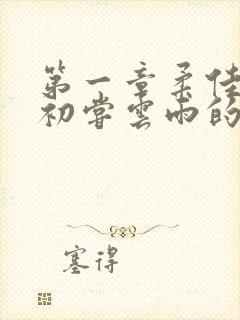 第一章柔佳
初尝云雨的
塞得